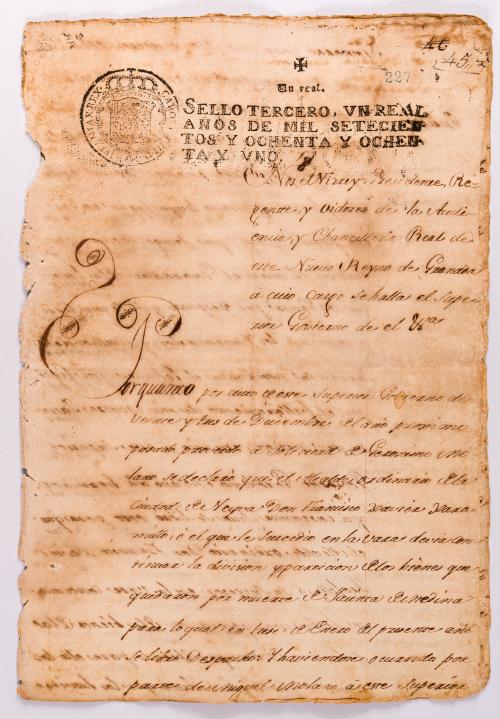 46
45
227
Un real.
SELLO TERCERO, VN REAL
AÑOS DE MIL SETECIEN-
TOS Y OCHENTA Y OCHEN-
TA Y VNO.
Nos el Virrey Presidente, Re-
gente, y Oidores de la Audi-
encia, y Chancilleria Real de
este Nuevo Reyno de Granada
á cuio cargo se halla el Supe-
rior Govierno de el
Porquanto por auto de este Superior Govierno de
veinte y tres de Diciembre el año proximo
pasado proveido á Solicitud de Geronimo Mo-
lano se declaró que el Alcalde ordinario de la
Ciudad de Neyva Don Francisco Xavier
ó el que le Sucedio en la vara devia con-
tinuar la division y particion de los bienes que
quedaron por muerte de Medina
para lo qual en de Enero el presente año
se libró Despacho Y haviendose ocurrido por
parte de Miguel Molano á este Superior